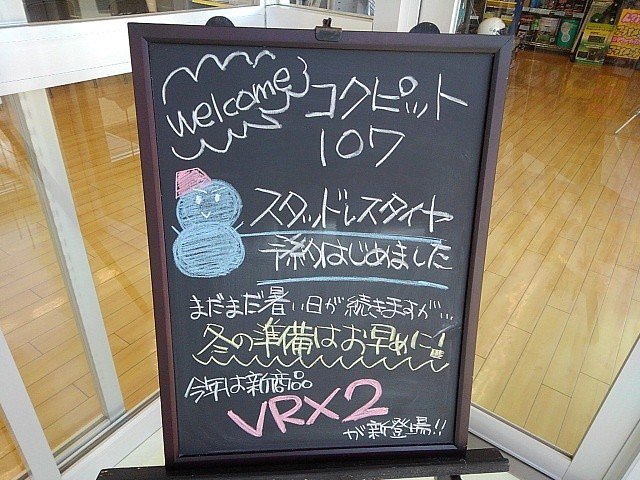 welcome
コクピット
107
スタッドレスタイヤ
予約はじめました
まだまだ暑い日が続きますが...
冬の準備はお早めに!
今年は新商品
VRX2
が新登場!!